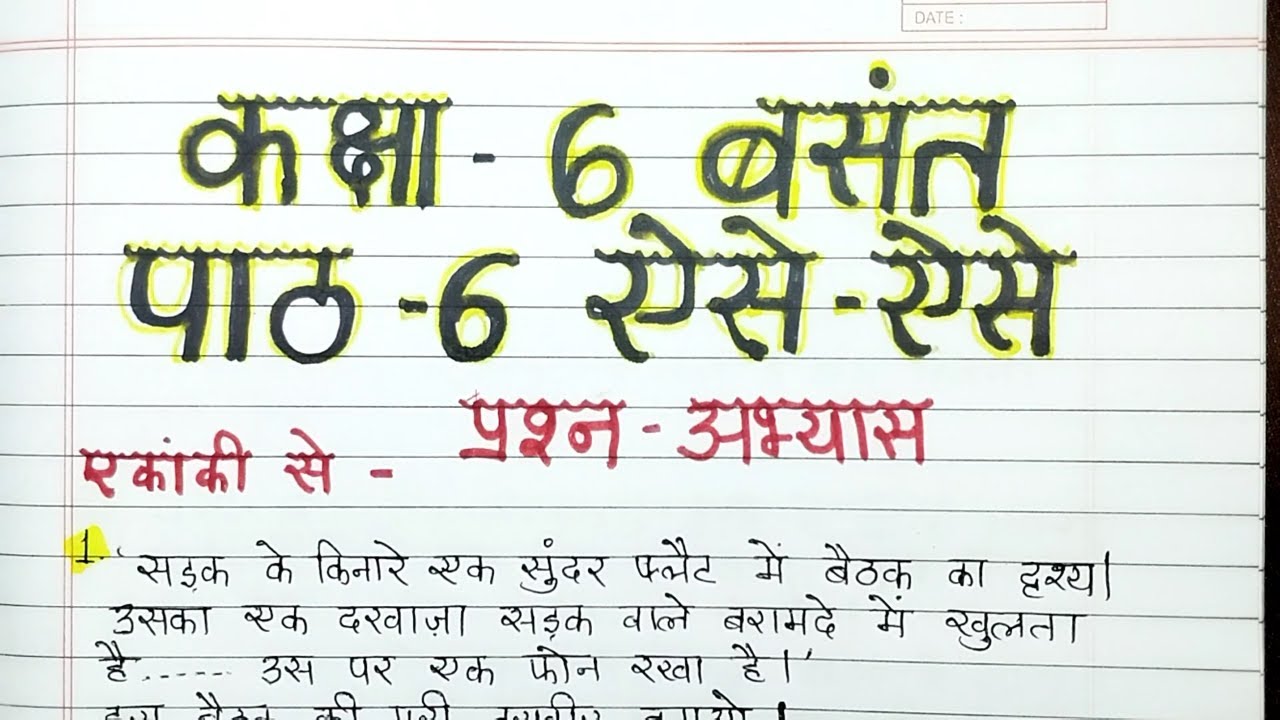 DATE :
कक्षा - 6 बसंत
पाठ - 6 ऐसे - ऐसे
प्रश्न - अभ्यास
एकांकी से -
1. 'सड़क के किनारे एक सुंदर फ्लैट में बैठक का दृश्य।
उसका एक दरवाज़ा सड़क वाले बरामदे में खुलता
है...... उस पर एक फोन रखा है।'